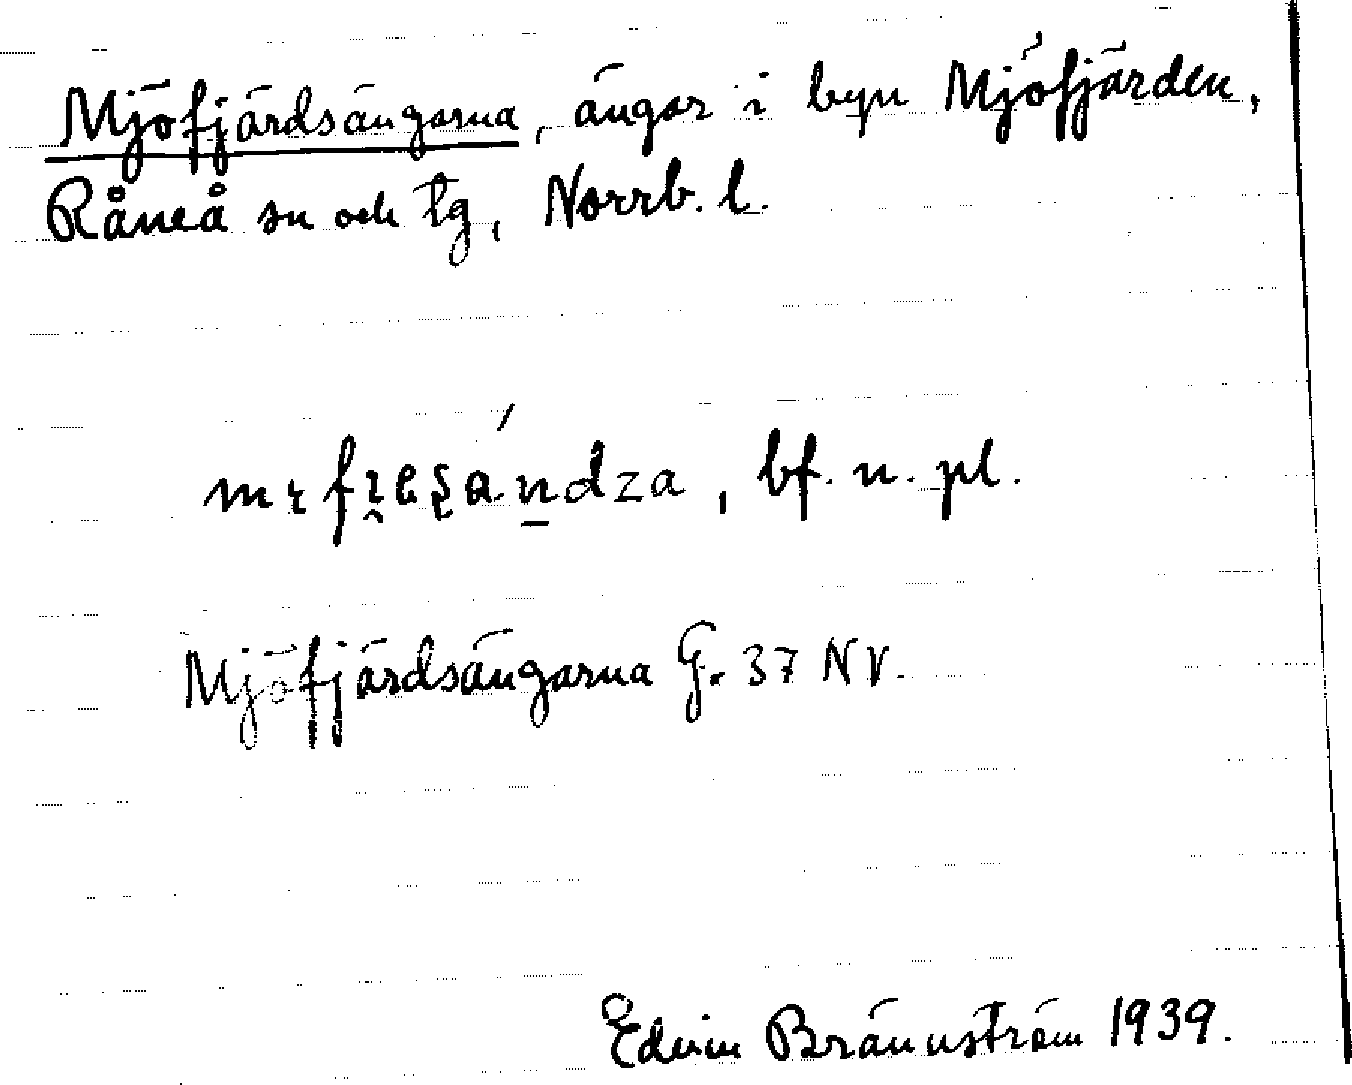 Mjöfjärdsängarna, ängar i byn Mjöfjärden,
Råneå sn och tg, Norrb. l.
bf. n. pl.
Mjöfjärdsängarna G. 37 NV.
Edvin Brännström 1939.